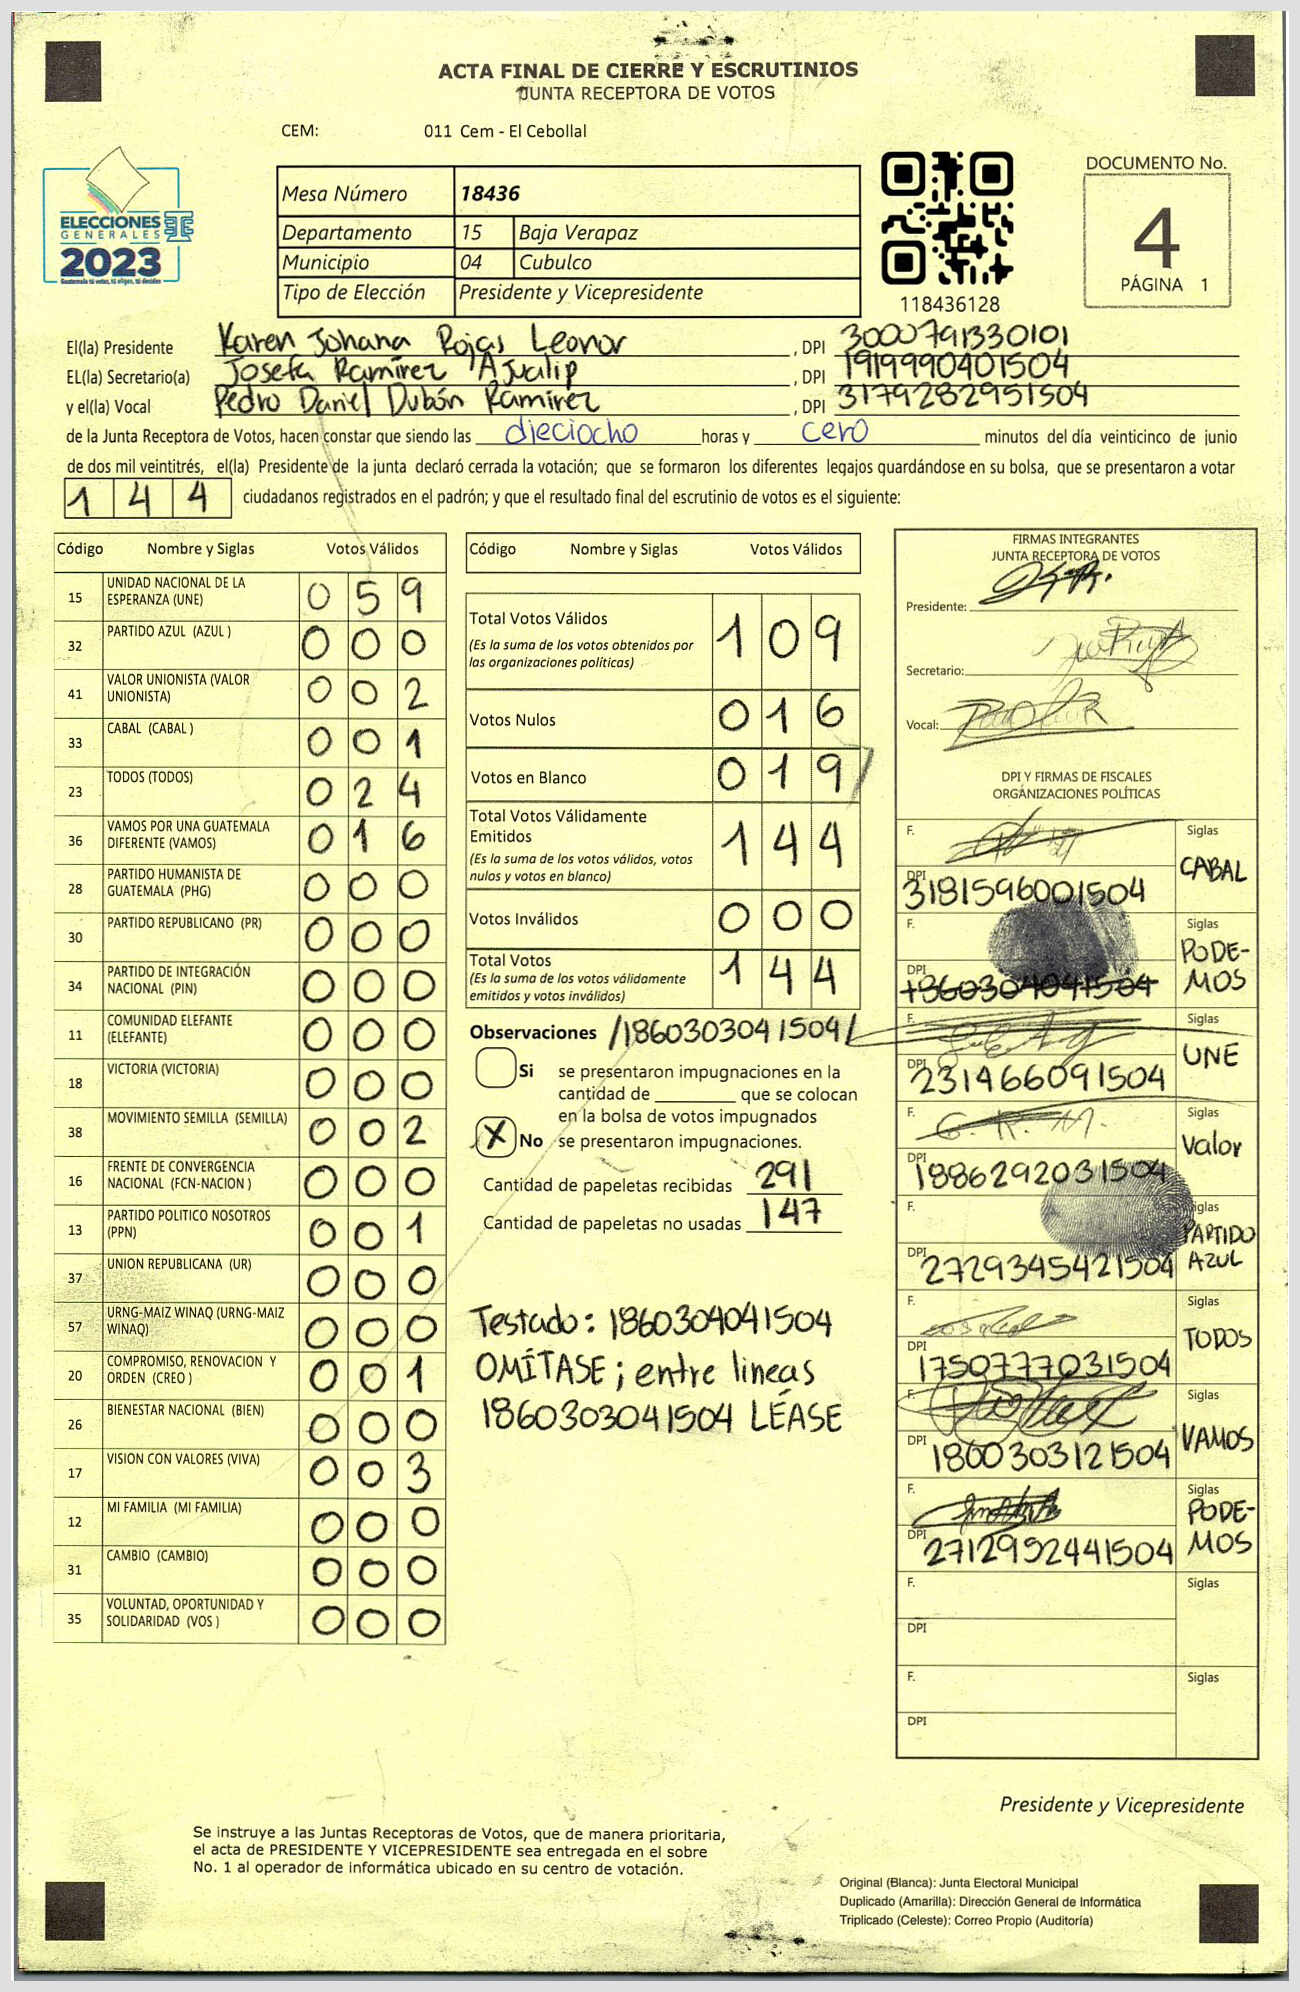 ACTA FINAL DE CIERRE Y ESCRUTINIOS
JUNTA RECEPTORA DE VOTOS
CEM: 011 Cem - El Cebollal
ELECCIONES
GENERALES
2023
Guatemala tú votas, tú eliges, tú decides
Mesa Número 18436
Departamento 15 Baja Verapaz
Municipio 04 Cubulco
Tipo de Elección Presidente y Vicepresidente
118436128
DOCUMENTO No.
4
PÁGINA 1
El(la) Presidente Karen Johana Rojas Leonor , DPI 3000791330101
EL(la) Secretario(a) Josefa Ramírez Ajualip , DPI 1919990401504
y el(la) Vocal Pedro Daniel Dubón Ramírez , DPI 3179282951504
de la Junta Receptora de Votos, hacen constar que siendo las dieciocho horas y cero minutos del día veinticinco de junio
de dos mil veintitrés, el(la) Presidente de la junta declaró cerrada la votación; que se formaron los diferentes legajos guardándose en su bolsa, que se presentaron a votar
144 ciudadanos registrados en el padrón; y que el resultado final del escrutinio de votos es el siguiente:
Código Nombre y Siglas Votos Válidos
15 UNIDAD NACIONAL DE LA ESPERANZA (UNE) 059
32 PARTIDO AZUL (AZUL ) 000
41 VALOR UNIONISTA (VALOR UNIONISTA) 002
33 CABAL (CABAL ) 001
23 TODOS (TODOS) 024
36 VAMOS POR UNA GUATEMALA DIFERENTE (VAMOS) 016
28 PARTIDO HUMANISTA DE GUATEMALA (PHG) 000
30 PARTIDO REPUBLICANO (PR) 000
34 PARTIDO DE INTEGRACIÓN NACIONAL (PIN) 000
11 COMUNIDAD ELEFANTE (ELEFANTE) 000
18 VICTORIA (VICTORIA) 000
38 MOVIMIENTO SEMILLA (SEMILLA) 002
16 FRENTE DE CONVERGENCIA NACIONAL (FCN-NACION ) 000
13 PARTIDO POLITICO NOSOTROS (PPN) 001
37 UNION REPUBLICANA (UR) 000
57 URNG-MAIZ WINAQ (URNG-MAIZ WINAQ) 000
20 COMPROMISO, RENOVACION Y ORDEN (CREO ) 001
26 BIENESTAR NACIONAL (BIEN) 000
17 VISION CON VALORES (VIVA) 003
12 MI FAMILIA (MI FAMILIA) 000
31 CAMBIO (CAMBIO) 000
35 VOLUNTAD, OPORTUNIDAD Y SOLIDARIDAD (VOS ) 000
Código Nombre y Siglas Votos Válidos
Total Votos Válidos 109
(Es la suma de los votos obtenidos por
las organizaciones políticas)
Votos Nulos 016
Votos en Blanco 019
Total Votos Válidamente
Emitidos 144
(Es la suma de los votos válidos, votos
nulos y votos en blanco)
Votos Inválidos 000
Total Votos 144
(Es la suma de los votos válidamente
emitidos y votos inválidos)
Observaciones /1860303041504/
Si se presentaron impugnaciones en la
cantidad de ________ que se colocan
en la bolsa de votos impugnados
X No se presentaron impugnaciones.
Cantidad de papeletas recibidas 291
Cantidad de papeletas no usadas 147
Testado: 1860304041504
OMÍTASE; entre lineas
1860303041504 LÉASE
FIRMAS INTEGRANTES
JUNTA RECEPTORA DE VOTOS
Presidente:
Secretario:
Vocal:
DPI Y FIRMAS DE FISCALES
ORGANIZACIONES POLÍTICAS
F. Siglas
CABAL
DPI 3181596001504
F. Siglas
PODE-
MOS
DPI 1860304041504
F. Siglas
UNE
DPI 231466091504
F. G. R. M. Siglas
Valor
DPI 1886292031504
F. Siglas
PARTIDO
AZUL
DPI 2729345421504
F. Siglas
TODOS
DPI 1750777031504
F. Siglas
VAMOS
DPI 1860303121504
F. Siglas
PODE-
MOS
DPI 2712952441504
F. Siglas
DPI
F. Siglas
DPI
Presidente y Vicepresidente
Se instruye a las Juntas Receptoras de Votos, que de manera prioritaria,
el acta de PRESIDENTE Y VICEPRESIDENTE sea entregada en el sobre
No. 1 al operador de informática ubicado en su centro de votación.
Original (Blanca): Junta Electoral Municipal
Duplicado (Amarilla): Dirección General de Informática
Triplicado (Celeste): Correo Propio (Auditoría)